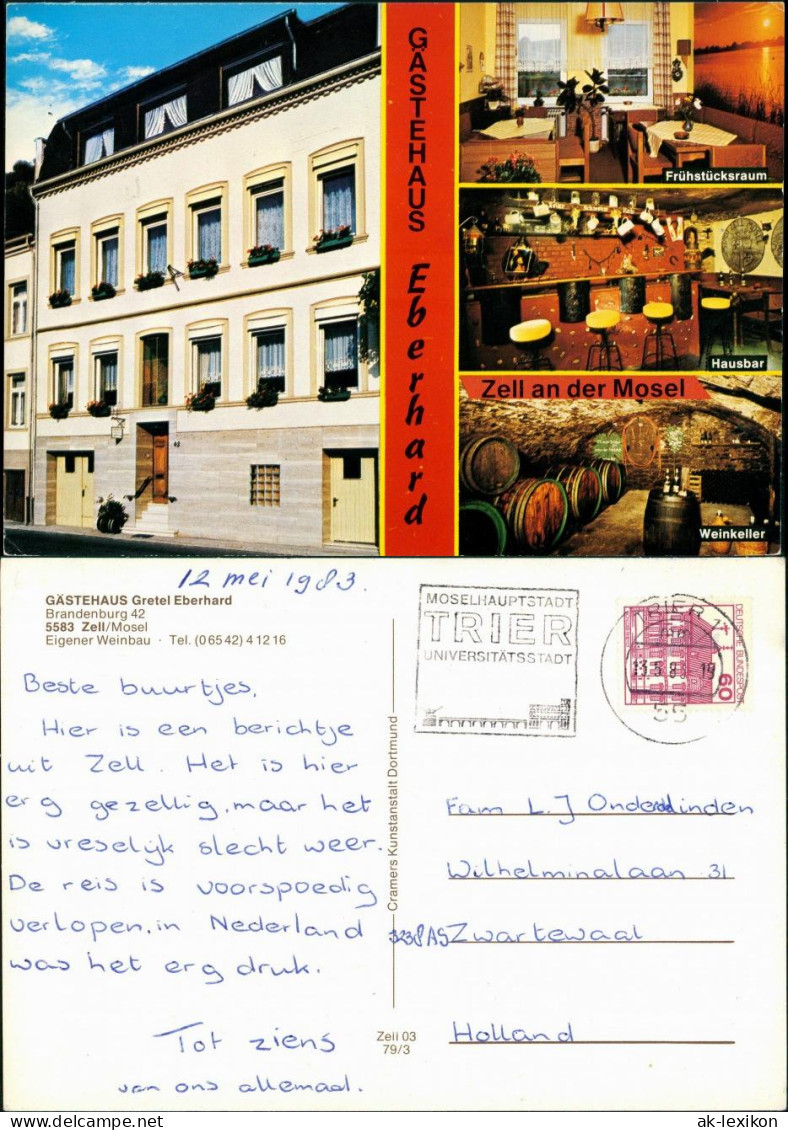 GÄSTEHAUS Eberhard
Frühstücksraum
Hausbar
Zell an der Mosel
Weinkeller
12 mei 1983.
GÄSTEHAUS Gretel Eberhard
Brandenburg 42
5583 Zell/Mosel
Eigener Weinbau · Tel. (06542) 41216
Beste buurtjes,
Hier is een berichtje
uit Zell. Het is hier
erg gezellig, maar het
is vreselijk slecht weer.
De reis is voorspoedig
verlopen, in Nederland
was het erg druk.
Tot ziens
van ons allemaal.
Cramers Kunstanstalt Dortmund
Zell 03
79/3
MOSELHAUPTSTADT
TRIER
UNIVERSITÄTSSTADT
TRIER 1
55
DEUTSCHE BUNDESPOST
60
Fam L. J Onderdelinden
Wilhelminalaan 31
3238AS Zwartewaal
Holland
ak-lexikon